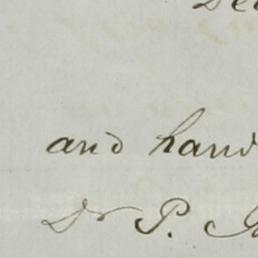 and hand
Dr P.